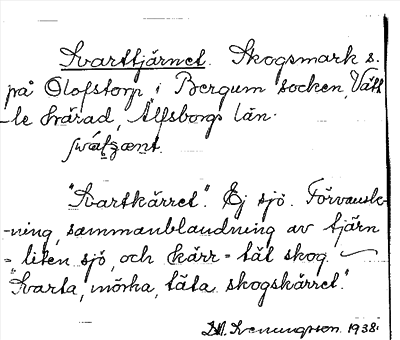 Svarttjärnet. Skogsmark s.
på Olofstorp i Bergum socken, Vätt
-le härad, Älfsborgs län.
"Svartkärret". Ej sjö. Förvansk-
-ning, sammanblandning av tjärn
= liten sjö, och kärr = tät skog.
"Svarta, mörka, täta skogskärret."
1938.